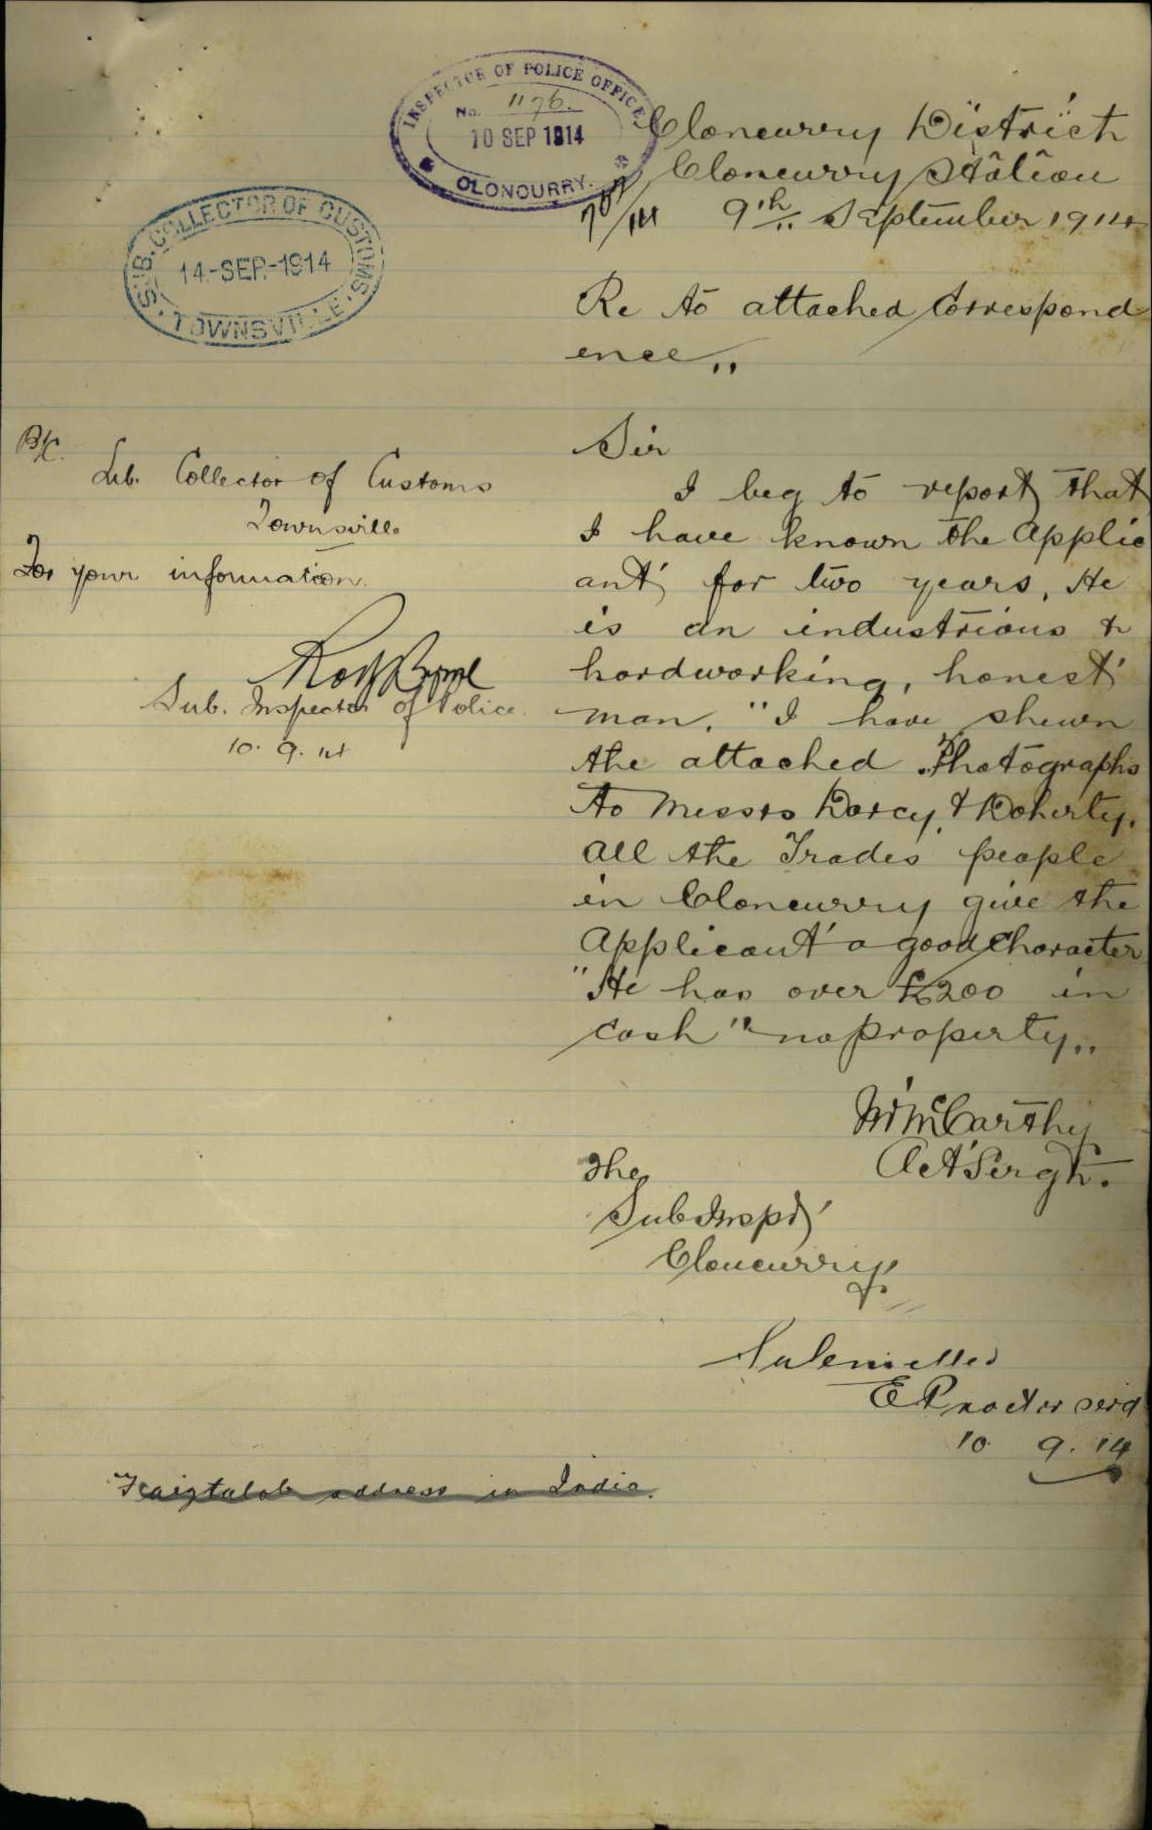 INSPECTOR OF POLICE OFFICE
No. 1176.
10 SEP 1914
CLONCURRY.
SUB. COLLECTOR OF CUSTOMS.
14-SEP-1914
TOWNSVILLE
Cloncurry District
Cloncurry Station
9th September 1914
Re to attached Correspond
ence
Sir
I beg to report that
I have known the Applic
ant for two years, He
is an industrious &
hardworking, honest
man. "I have shewn
the attached Photographs
to Messrs Darcy, & Doherty.
All the Trades people
in Cloncurry give the
Applicant a good Character
"He has over £200 in
cash " no property..
McCarthy
Act Sergt.
The
Sub Inspr
Cloncurry
Submitted
E Proctor Serg
10 9. 14
B/C.
Sub. Collector of Customs
Townsville
For your information.
Sub. Inspector of Police.
10. 9. 14
address in India.